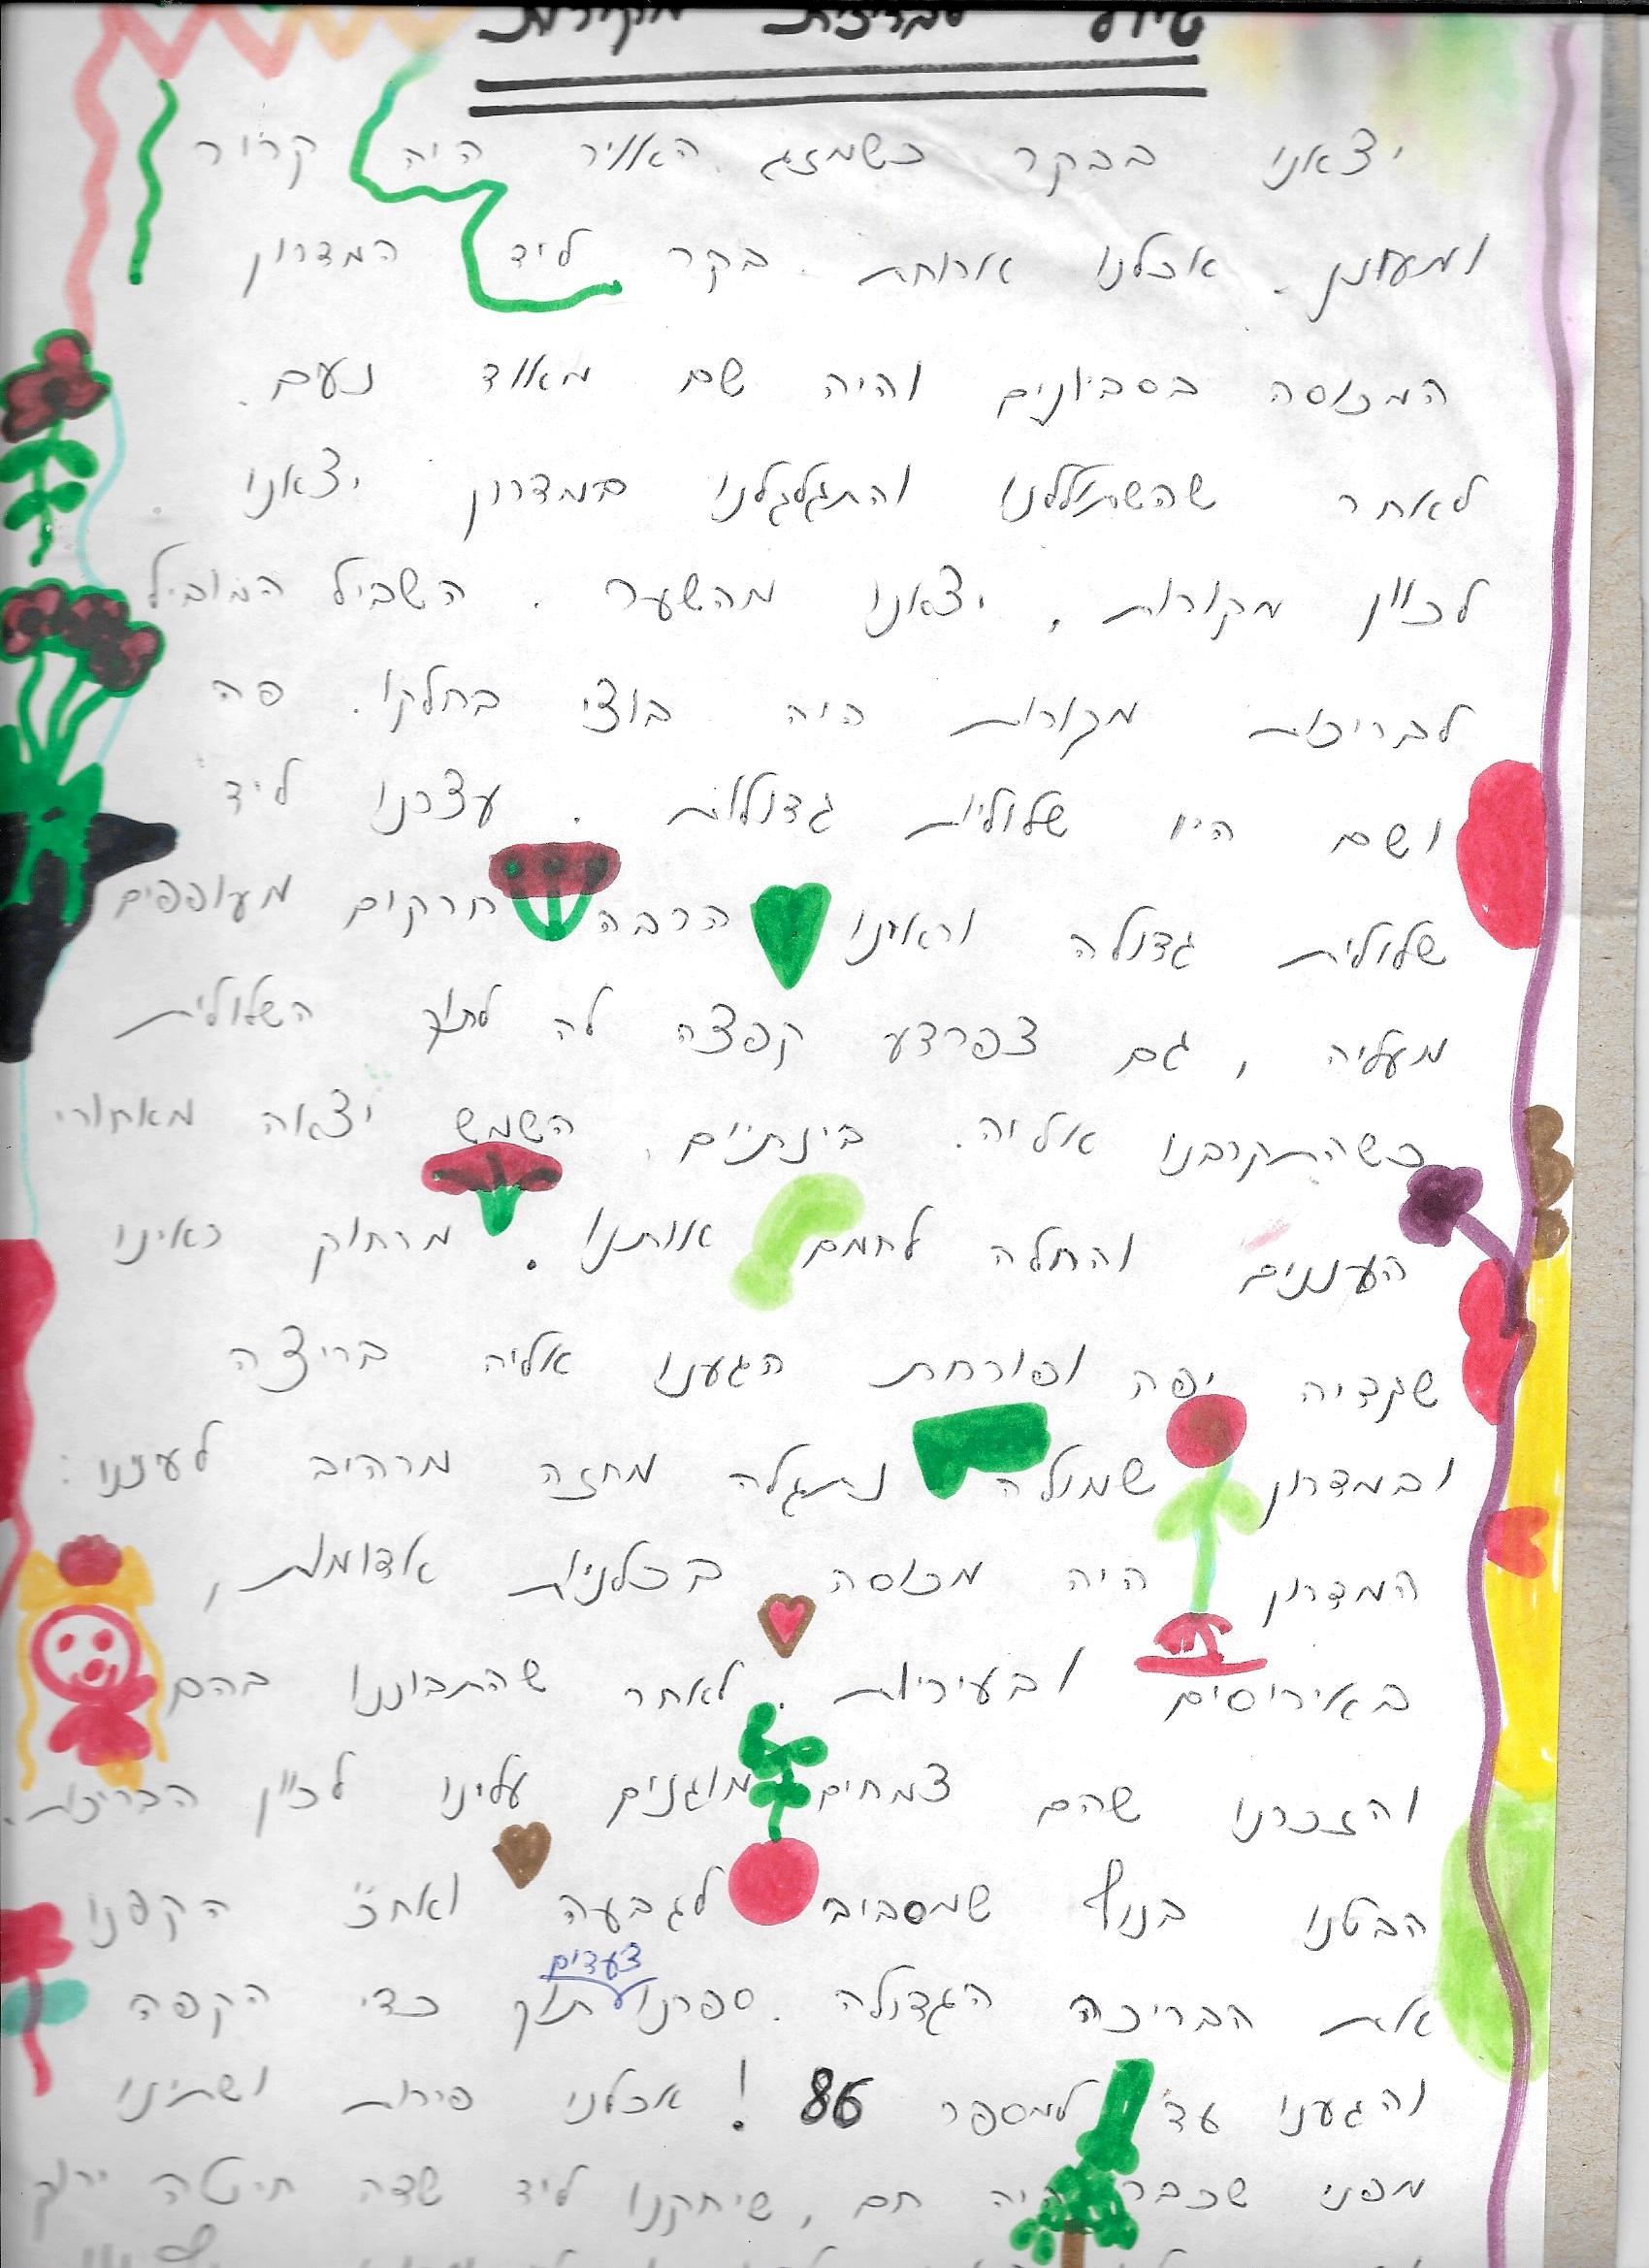 טיול לבריכות מקורות
יצאנו בבקר כשמזג האויר היה קריר
ומעונן. אכלנו ארוחת בקר ליד המדרון
המכוסה בסביונים והיה שם מאוד נעם.
לאחר שהשתוללנו והתגלגלנו במדרון יצאנו
לכיוון מקורות. יצאנו מהשער. השביל המוביל
לבריכות מקורות היה בוצי בחלקו. פה
ושם היו שלוליות גדולות. עצרנו ליד
שלולית גדולה וראינו הרבה חרקים מעופפים
מעליה, גם צפרדע קפצה לה לתוך השלולית
כשהתקרבנו אליה. בינתיים השמש יצאה מאחורי
העננים והחלה לחמם אותנו. מרחוק ראינו
שקדיה יפה ופורחת הגענו אליה בריצה
ובמדרון שמולה נתגלה מחזה מרהיב לעינינו:
המדרון היה מכוסה בכלניות אדומות,
באירוסים ובעיריות. לאחר שהתבוננו בהם
והזכרנו שהם צמחים מוגנים עלינו לכיוון הבריכות.
הבטנו בנוף שמסביב לגבעה ואח"כ הקפנו
את הבריכה הגדולה. ספרנו צעדים תוך כדי הקפה
והגענו עד למספר 86! אכלנו פירות ושתינו
מפני שכבר היה חם, שיחקנו ליד שדה חיטה ירוק